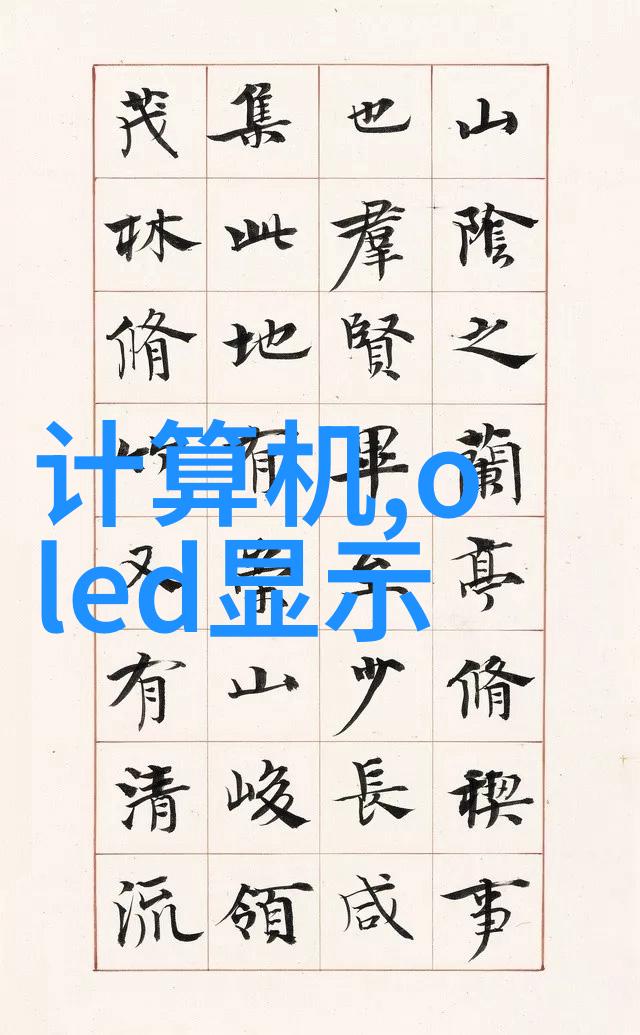 山陰之蘭亭脩稧事
也羣賢畢至少長咸
集此地有崇山峻領
茂林脩竹又有清流
计算机,o
led显示